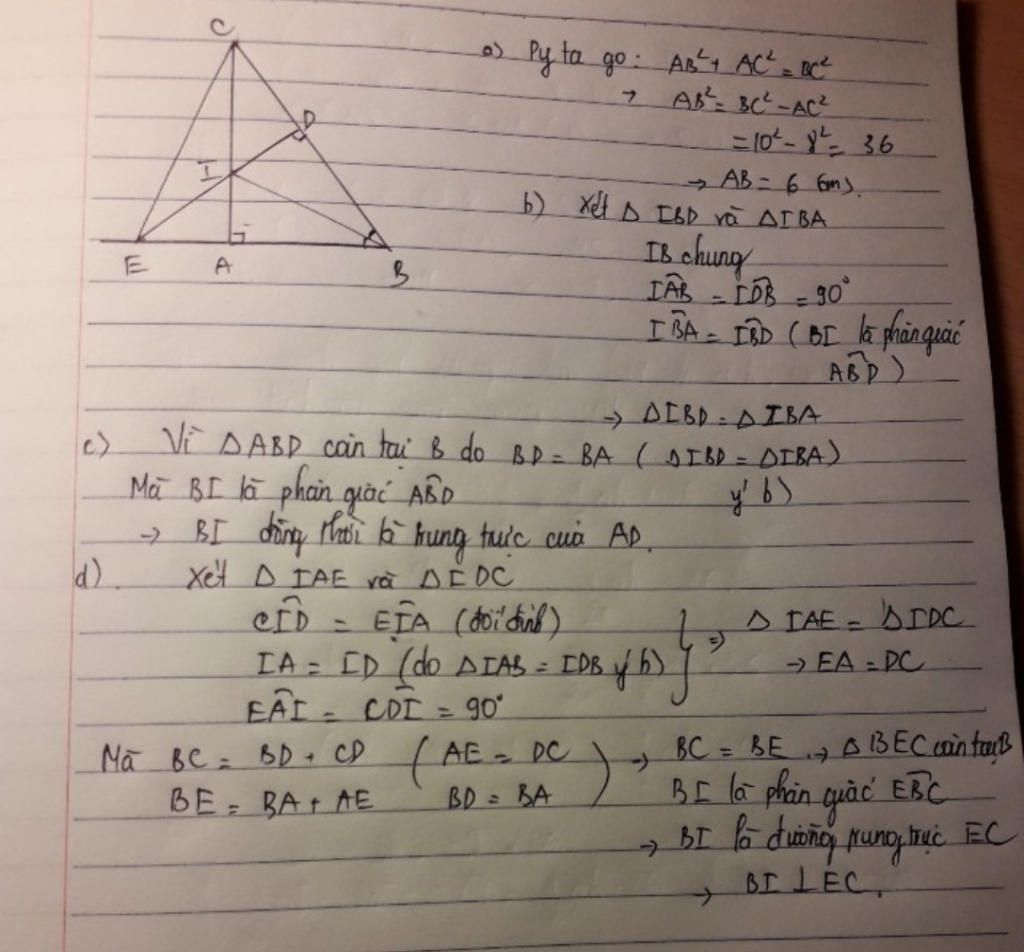 C
D
I
E A B
a) Pytago: AB² + AC² = BC²
→ AB² = BC² - AC²
= 10² - 8² = 36
→ AB = 6 (cm).
b) Xét Δ IBD và Δ IBA
IB chung
IÂB = ID̂B = 90°
IB̂A = IB̂D (BI là phân giác
AB̂D)
→ Δ IBD = Δ IBA
c) Vì Δ ABD cân tại B do BD = BA (Δ IBD = Δ IBA)
Mà BI là phân giác AB̂D ý b)
→ BI đồng thời là trung trực của AD.
d). Xét Δ IAE và Δ IDC
CÎD = EÎA (đối đỉnh)
IA = ID (do Δ IAB = IDB ý b)
EÂI = CD̂I = 90°
} ⇒ Δ IAE = Δ IDC
→ EA = DC
Mà BC = BD + CD (AE = DC
BE = BA + AE BD = BA)
→ BC = BE → Δ BEC cân tại B
BI là phân giác EB̂C
→ BI là đường trung trực EC
→ BI ⊥ EC.